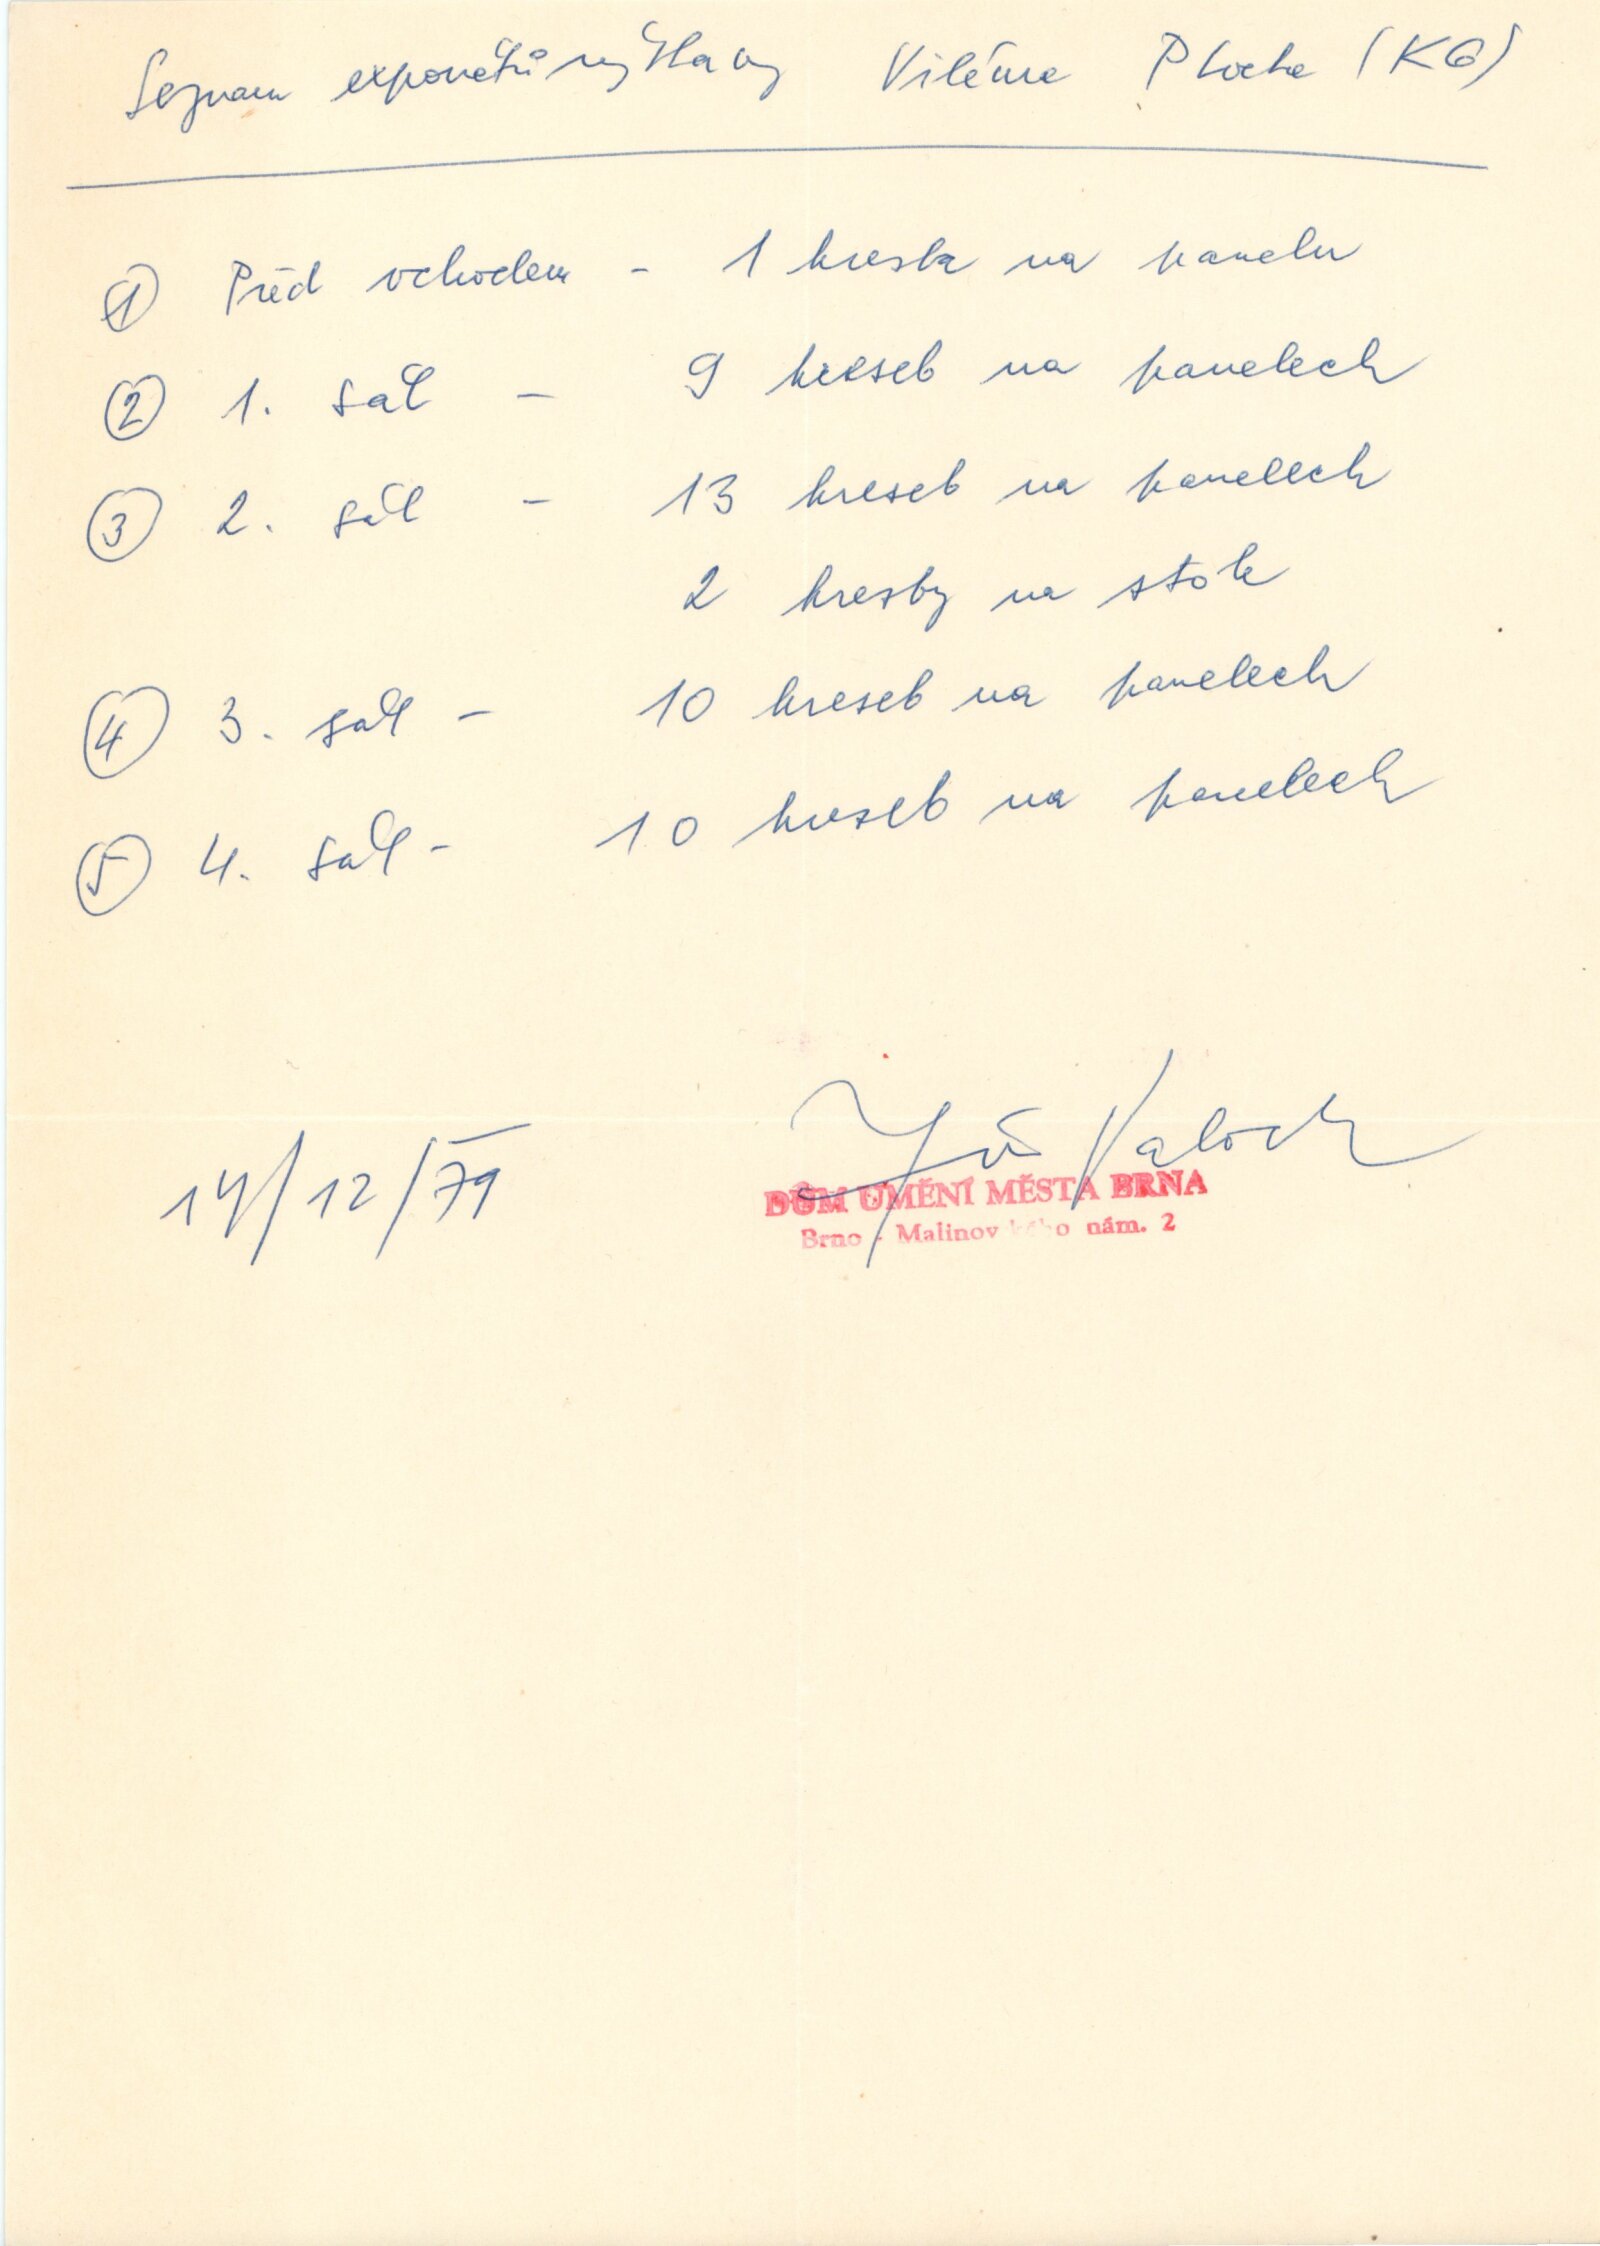 Seznam exponátů výstavy Viléma Plocka (KG)
① Před vchodem - 1 kresba na panelu
② 1. sál - 9 kreseb na panelech
③ 2. sál - 13 kreseb na panelech
2 kresby na stole
④ 3. sál - 10 kreseb na panelech
⑤ 4. sál - 10 kreseb na panelech
14/12/79
Jiří Valoch
DŮM UMĚNÍ MĚSTA BRNA
Brno - Malinovského nám. 2